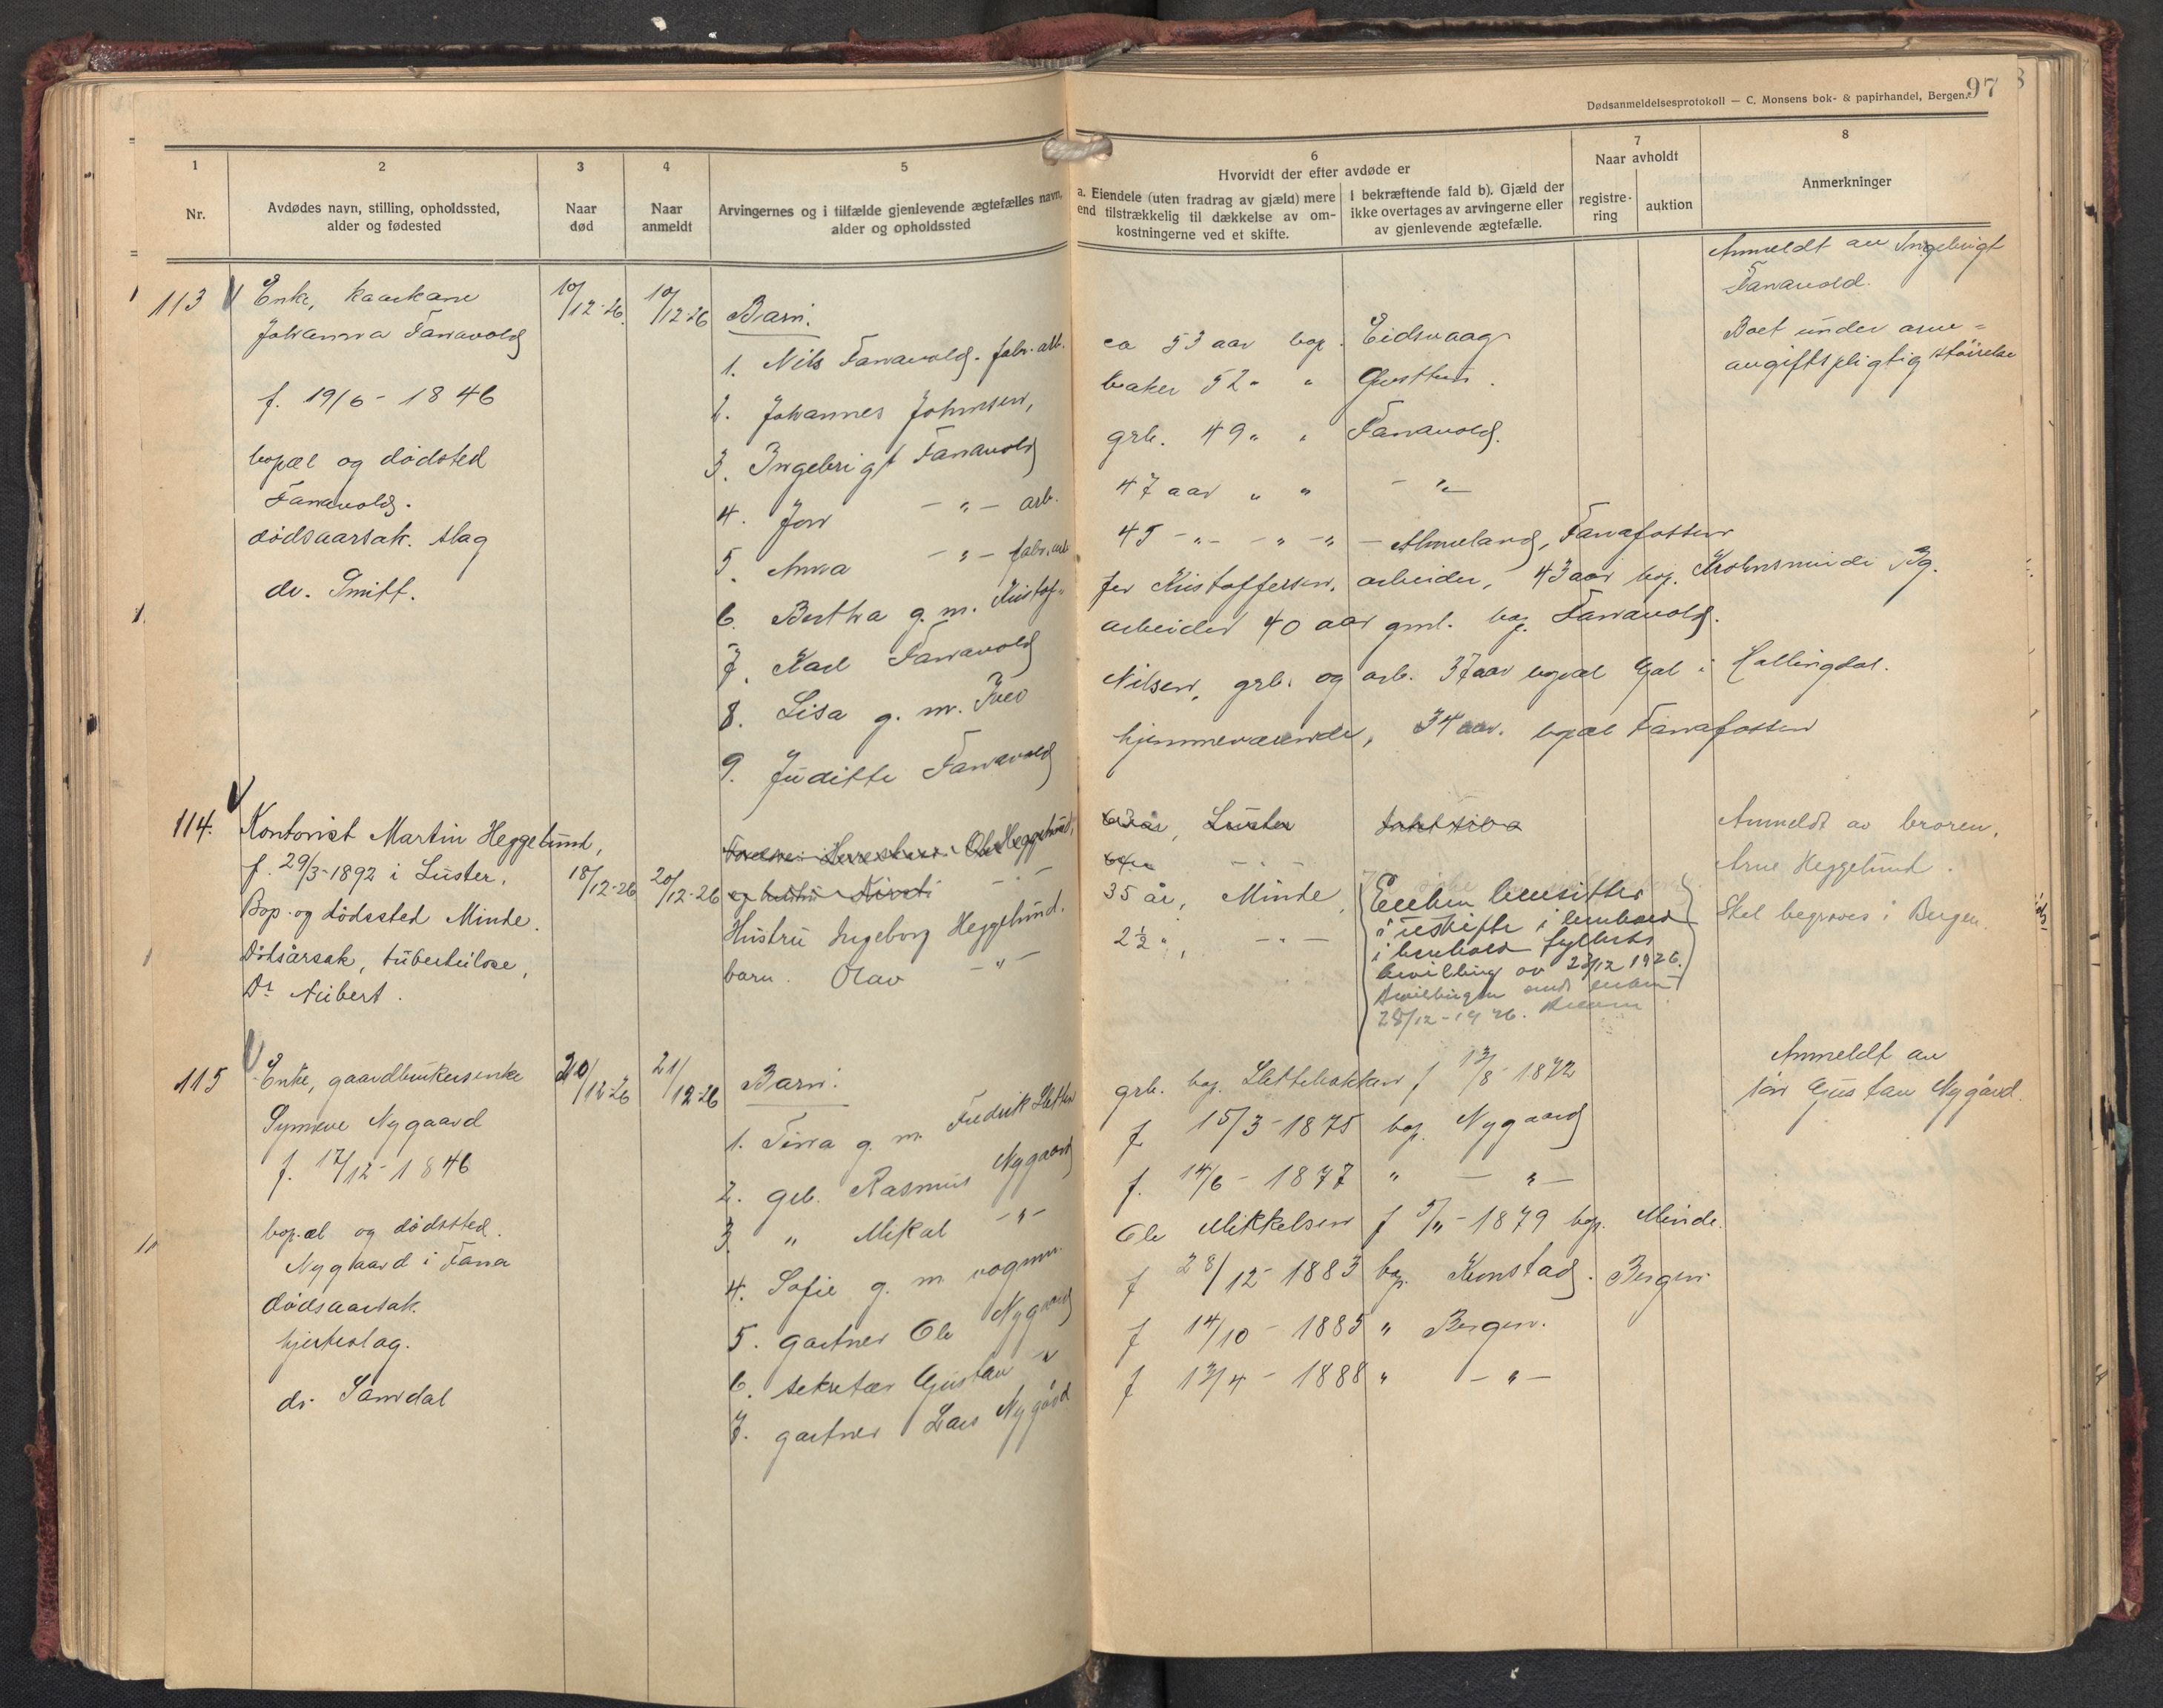 97
Dødsanmeldelsesprotokoll — C. Monsens bok- & papirhandel, Bergen.
1
Nr.
2
Avdødes navn, stilling, opholdssted,
alder og fødested
3
Naar
død
4
Naar
anmeldt
5
Arvingernes og i tilfælde gjenlevende ægtefælles navn,
alder og opholdssted
6
Hvorvidt der efter avdøde er
a. Eiendele (uten fradrag av gjæld) mere
end tilstrækkelig til dækkelse av om-
kostningerne ved et skifte.
I bekræftende fald b). Gjæld der
ikke overtages av arvingerne eller
av gjenlevende ægtefælle.
7
Naar avholdt
registre-
ring
auktion
8
Anmerkninger
113
Enke, kaarkone
Johanna Fanavold
f. 19/6 - 1846
bopæl og dødsted
Fanavold.
dødsaarsak. slag
dr. Smitt.
10/12-26
10/12-26
Barn:
1. Nils Fanavold. fabr. arb.
ca 53 aar bop. Eidsvaag
2. Johannes Johnsen,
baker 52 " "
3. Ingebrigt Fanavold
grb. 49 " " Fanavold.
4. Jon — " — arb.
47 aar " " — " —
5. Anna — " — fabr. arb
45 - " - - " - " -
Fanafossen
6. Bertha g. m. Kristof-
fer Kristoffersen, arbeider, 43 aar bop. Krohnsminde Bg.
7. Karl Fanavold
arbeider 40 aar gml. bop. Fanavold.
8. Lisa g. m. Iver
Nilsen, grb. og arb. 37 aar bopæl Gol i Hallingdal.
9. Juditte Fanavold
hjemmeværende, 34 aar. bopæl Fanafossen
Anmeldt av Ingebrigt
Fanavold.
Boet under arve-
avgiftspligtig størrelse
114.
Kontorist Martin Heggelund,
f. 29/3-1892 i Luster.
Bop. og dødssted Minde.
Dødsårsak, tuberkulose,
Dr Aubert.
18/12-26
20/12-26
Ole Heggelund,
63 år, Luster
og hustru
Hustru Ingeborg Heggelund.
35 år, Minde,
barn. Olav — " —
2½ ", — " —
Enken hensitter
i uskifte i henhold
i henhold
bevilling av 23/12 1926.
Bevillingen sendt enken
28/12-1926.
Anmeldt av broren,
Arne Heggelund.
Skal begraves i Bergen.
115
Enke, gaardbrukersenke
Synneve Nygaard
f. 12/12-1846
bopæl og dødssted.
Nygaard i Fana
dødsaarsak.
hjerteslag.
dr. Samdal
20/12-26
21/12-26
Barn:
1. Tina g. m. Fredrik Sletten
grb. bop. Slettebakken f 13/8-1872
2. grb. Rasmus Nygaard
f. 15/3-1875 bop. Nygaard
3. " Mikal — " —
f. 14/6 - 1877 " — " —
4. Sofie g. m. vognm.
Ole Mikkelsen f 5/11-1879 bop. Minde.
5. gartner Ole Nygaard
f 28/12-1883 bop. Kronstad. Bergen.
6. sekretær Gustav "
f 14/10 - 1885 " Bergen.
7. gartner Lars Nygård
f 13/4 - 1888 " — " —
Anmeldt av
søn Gustav Nygård.